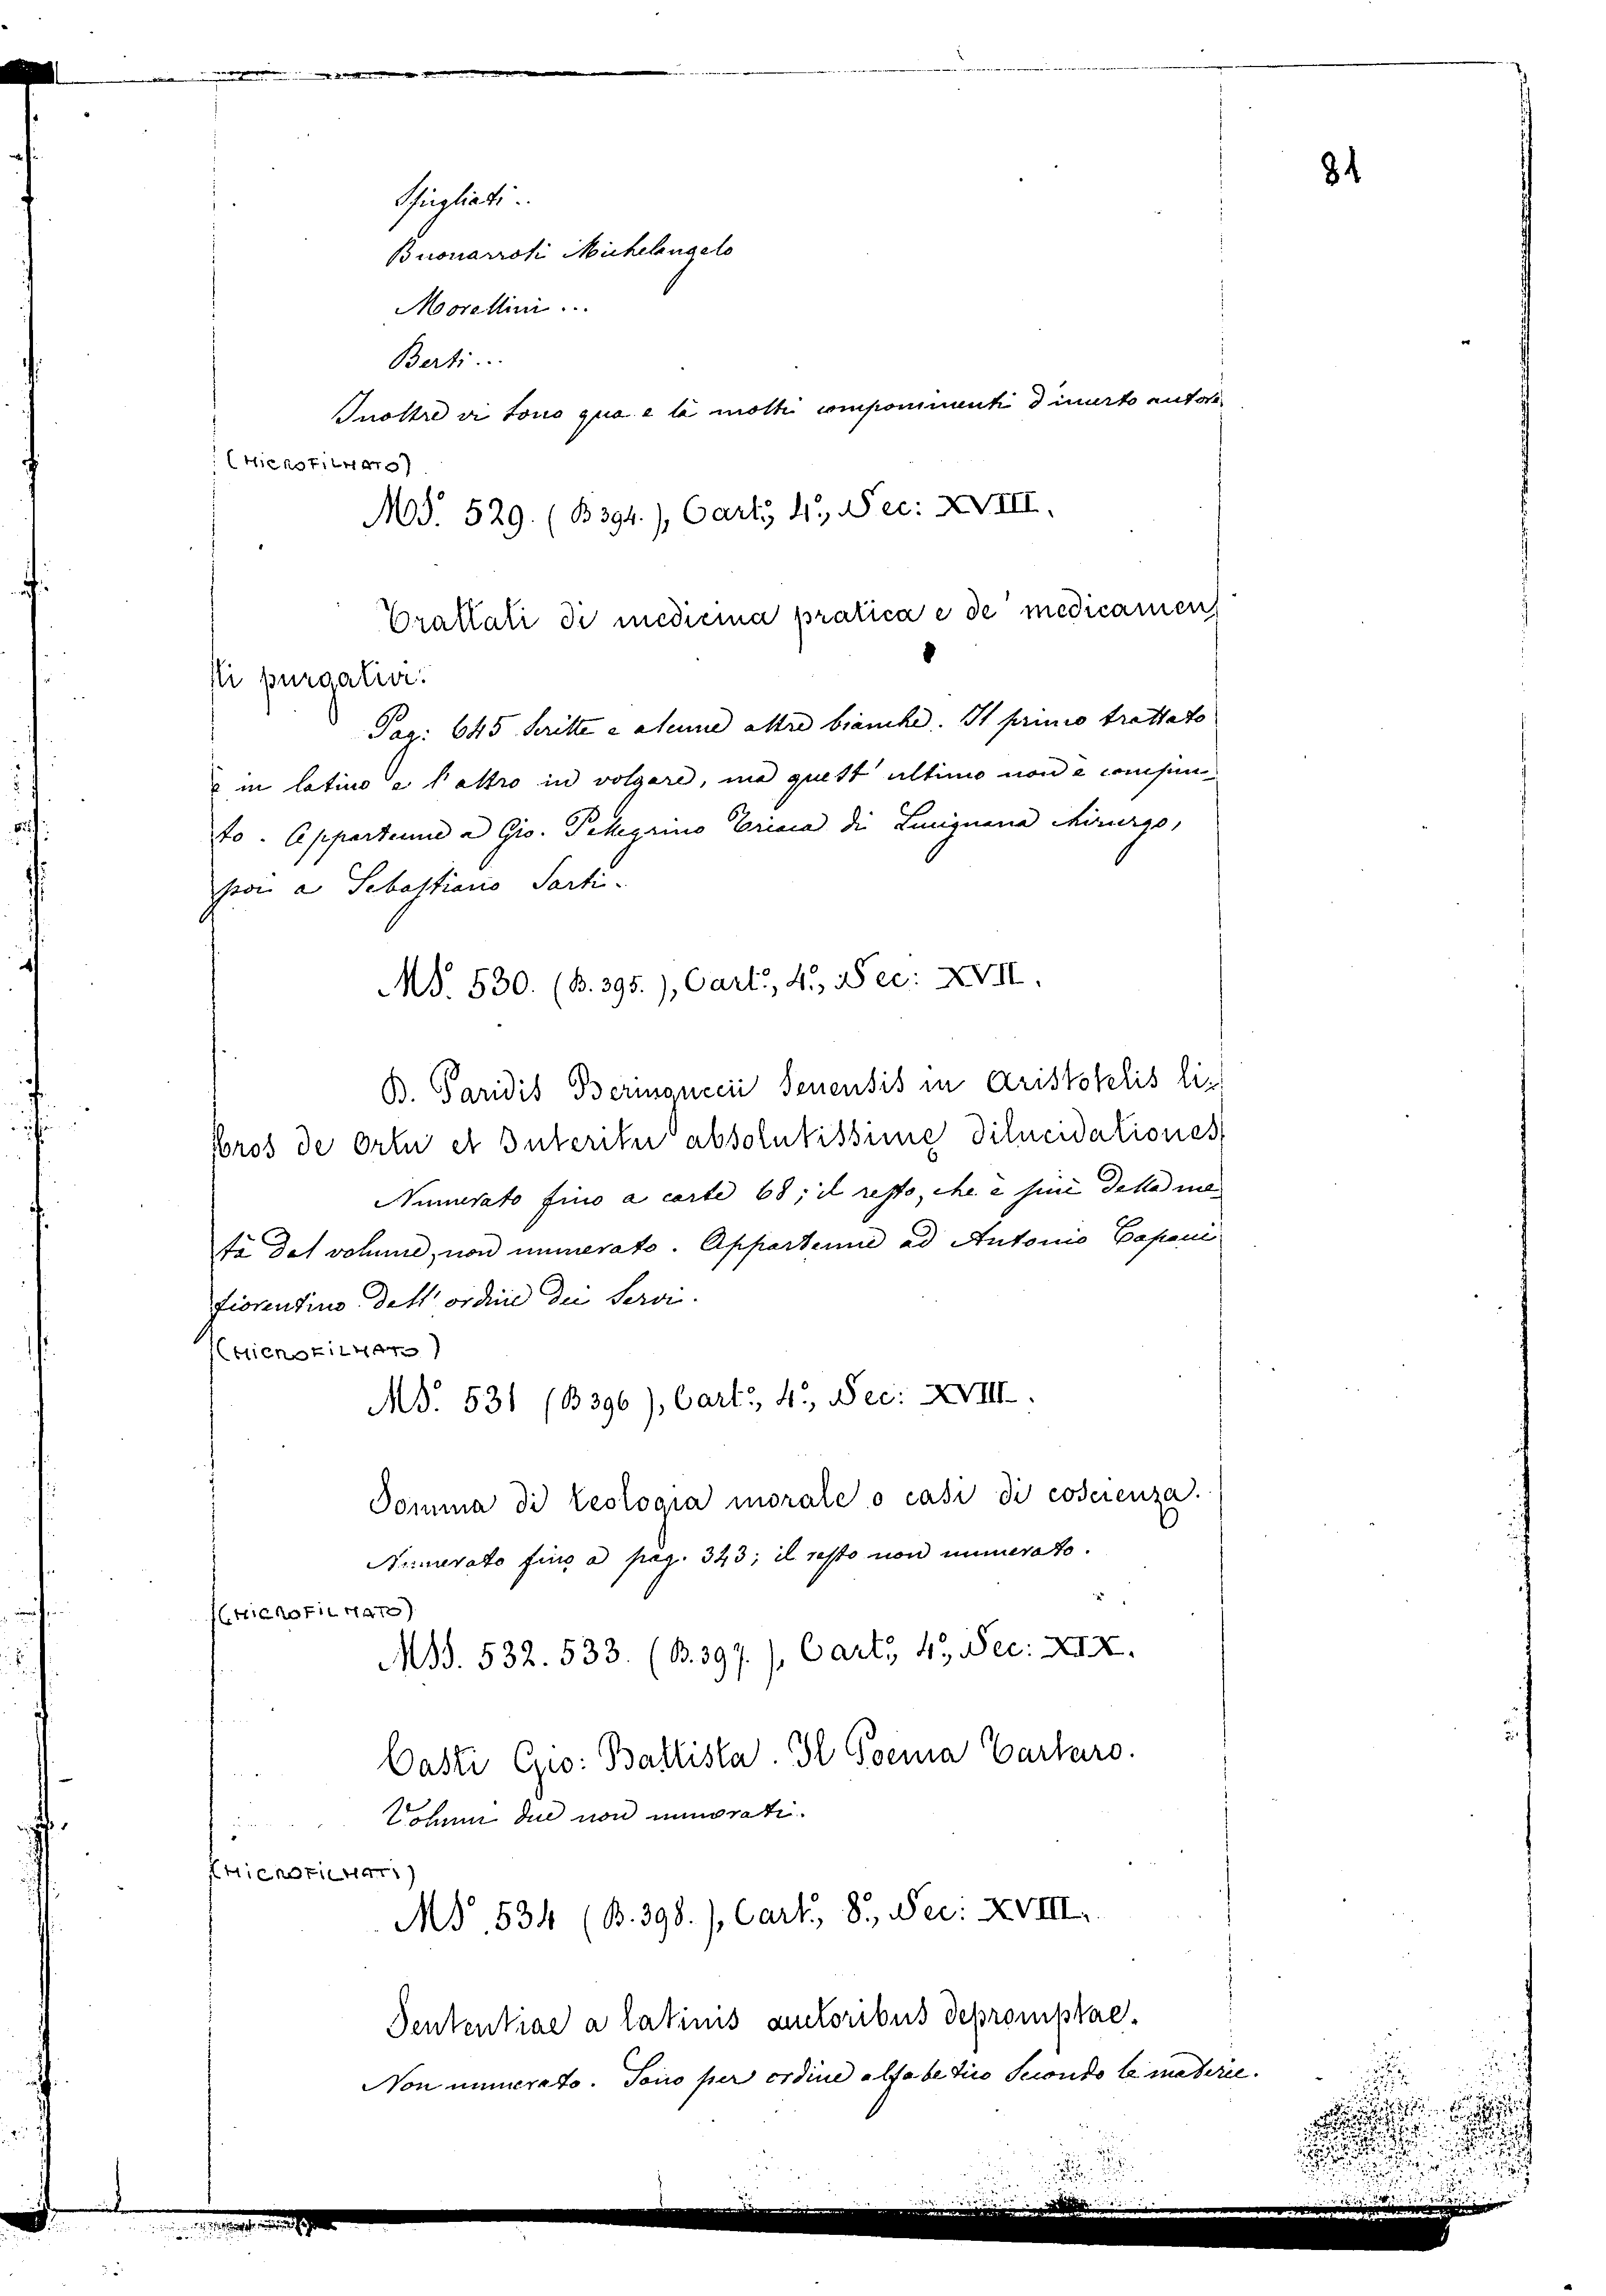 81
Sfigliati..
Buonarroti Michelangelo
Morellini...
Berti...
Inoltre vi sono qua e là molti componimenti d'incerto autore.
(MICROFILMATO)
MS. 529. (B 394.), Cart.°, 4.°, Sec: XVIII.
Trattati di medicina pratica e de' medicamen
ti purgativi.
Pag: 645 scritte e alcune altre bianche. Il primo trattato
è in latino e l'altro in volgare, ma quest'ultimo non è compiu
to. Appartenne a Gio. Pellegrino di Lunignana chirurgo,
poi a Sebastiano Sarti.
MS. 530. (B. 395.), Cart.°, 4.°, Sec: XVII.
B. Paridis Beringuccii Senensis in Aristotelis li-
bros de Ortu et Interitu absolutissimę dilucidationes
Numerato fino a carte 68; il resto, che è più della me
tà del volume, non numerato. Appartenne ad Antonio Capani
fiorentino dell'ordine dei Servi.
(MICROFILMATO)
MS. 531 (B 396), Cart.°, 4.°, Sec: XVIII.
Somma di teologia morale o casi di coscienza.
Numerato fino a pag. 343; il resto non numerato.
(MICROFILMATO)
MSS. 532. 533. (B. 397.), Cart.°, 4.°, Sec: XIX.
Casti Gio: Battista. Il Poema Tartaro.
Volumi due non numerati.
(MICROFILMATI)
MS. 534 (B. 398.), Cart.°, 8.°, Sec: XVIII.
Sententiae a latinis auctoribus depromptae.
Non numerato. Sono per ordine alfabetico secondo le materie.